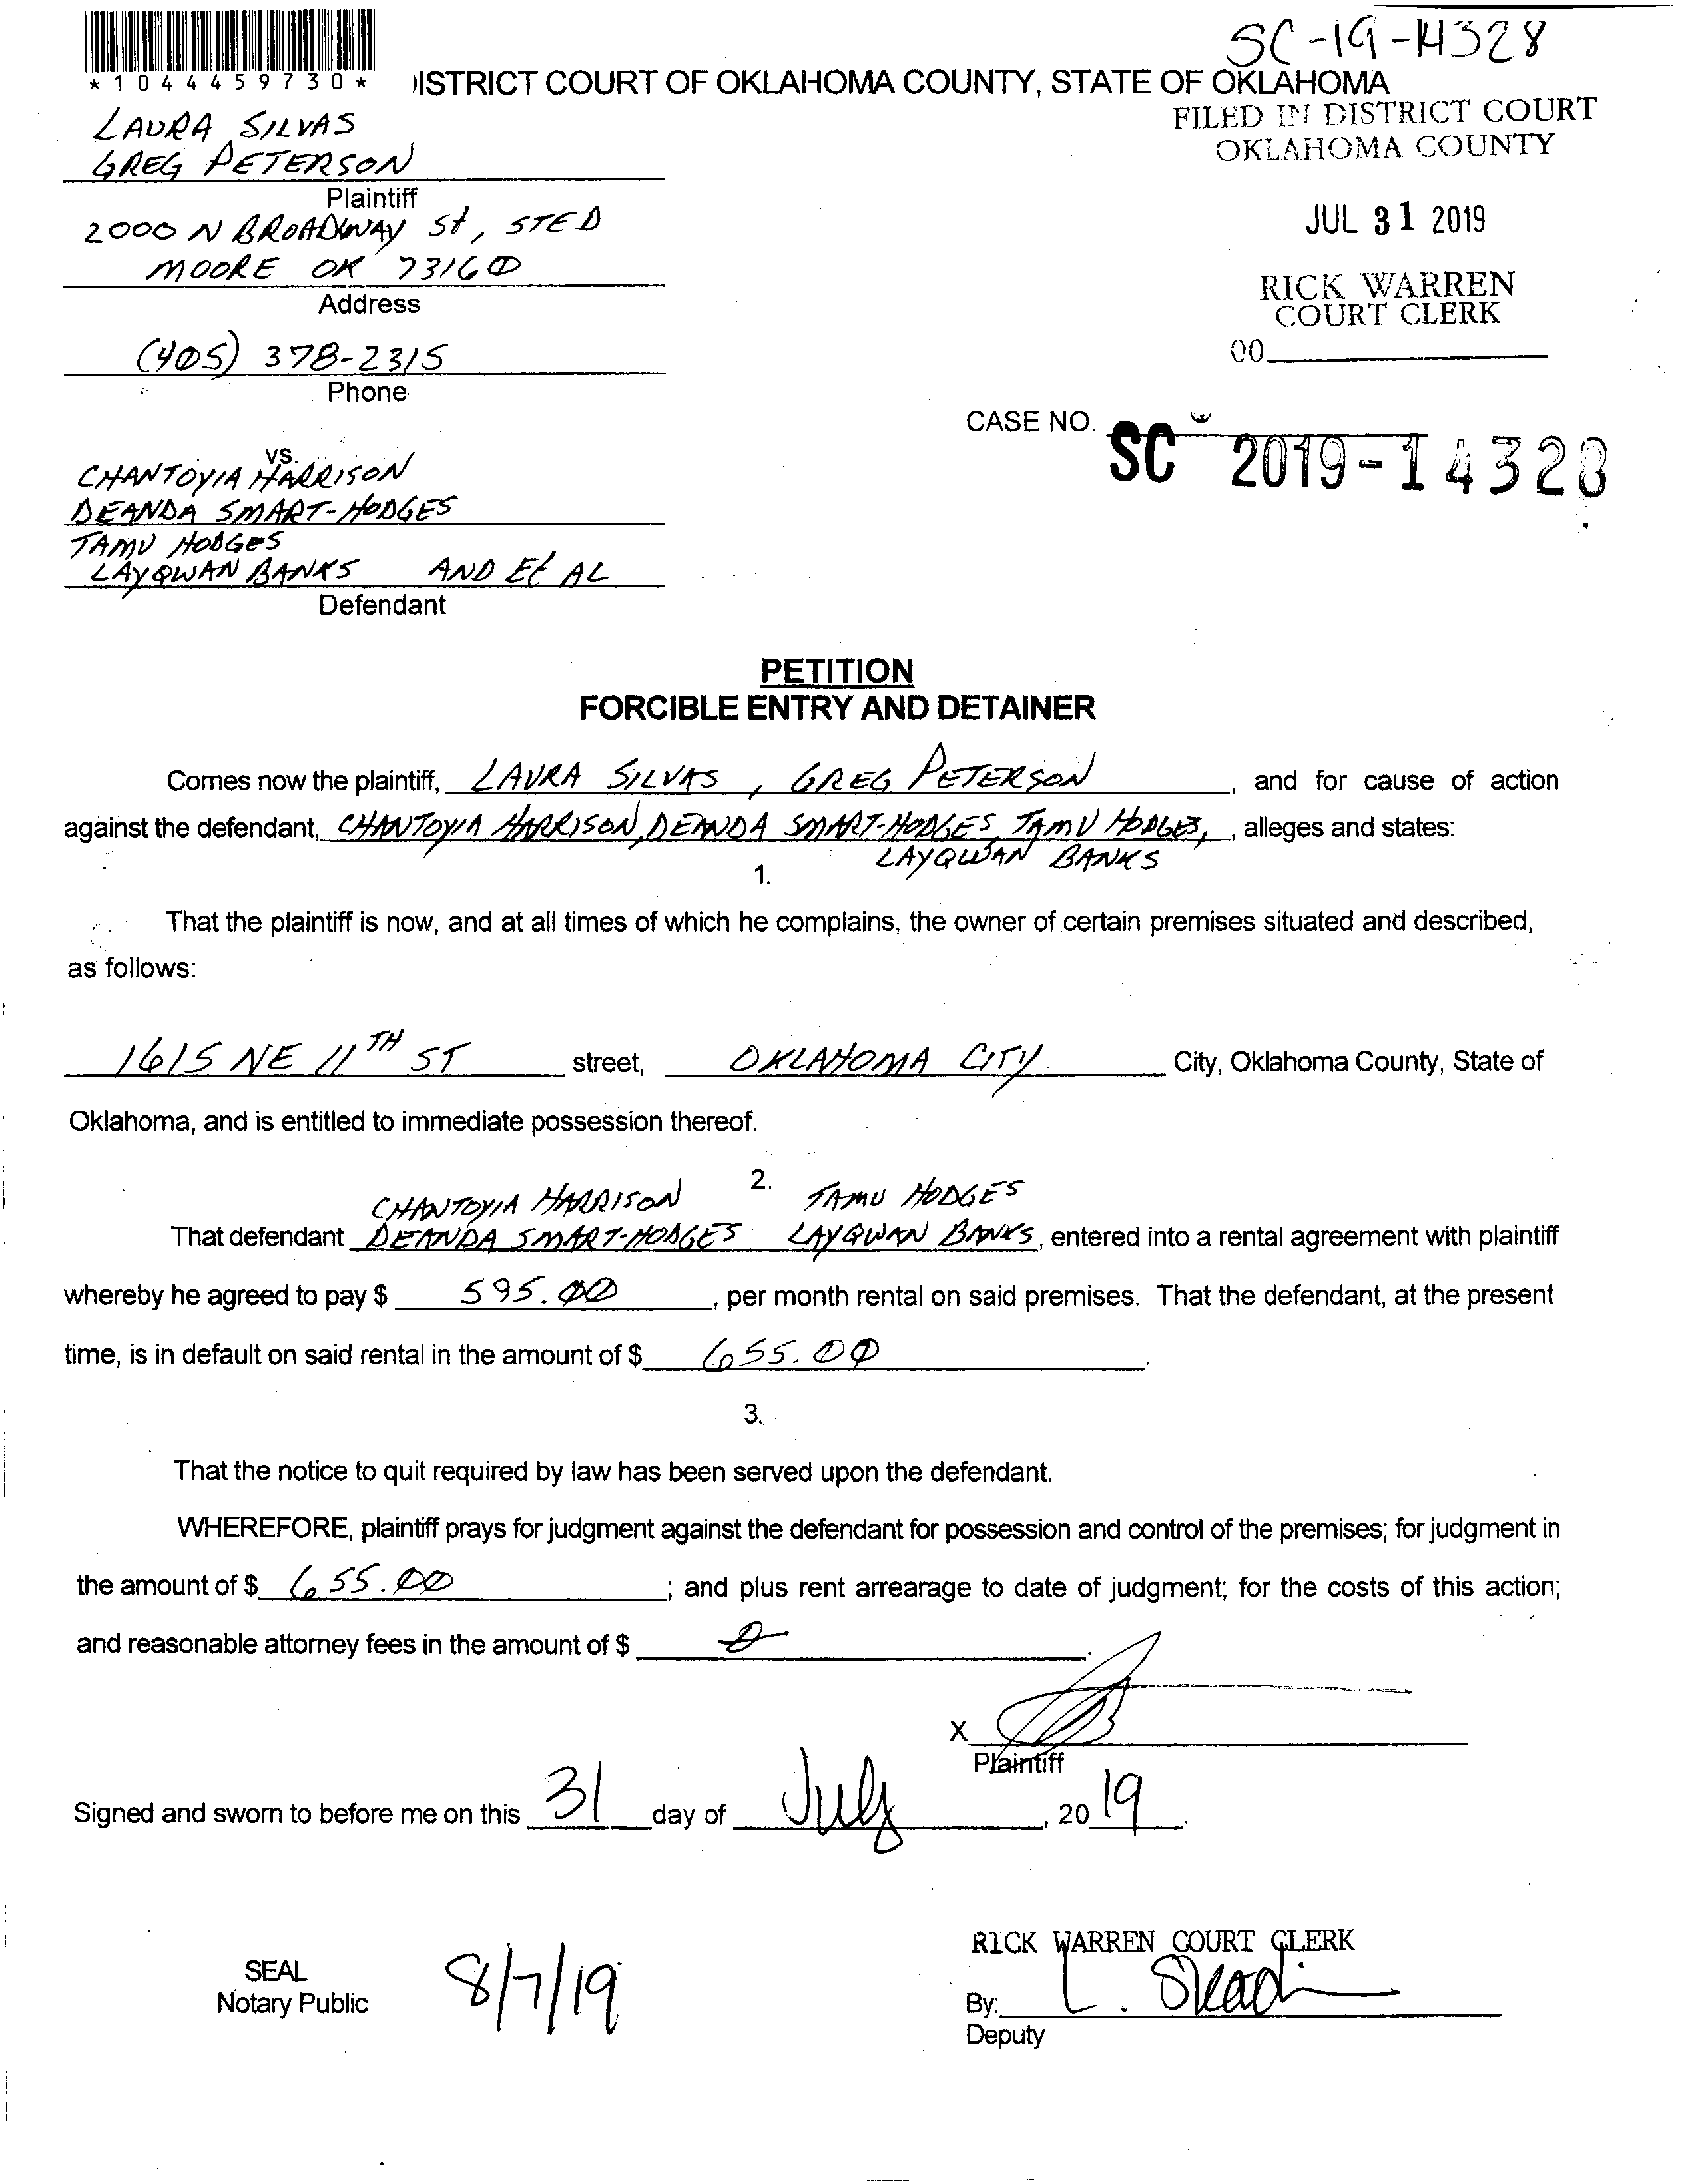 SC-19-14328
*1044459730*
ISTRICT COURT OF OKLAHOMA COUNTY, STATE OF OKLAHOMA
FILED IN DISTRICT COURT
OKLAHOMA COUNTY
JUL 31 2019
RICK WARREN
COURT CLERK
00
LAURA SILVAS
GREG PETERSON
Plaintiff
2000 N BROADWAY St, STE D
MOORE OK 73160
Address
(405) 378-2315
Phone
CASE NO. SC 2019-14328
vs.
CHANTOYIA HARRISON
DEANDA SMART-HODGES
TAMU HODGES
LAYQWAN BANKS AND Et AL
Defendant
PETITION
FORCIBLE ENTRY AND DETAINER
Comes now the plaintiff, LAURA SILVAS, GREG PETERSON, and for cause of action
against the defendant, CHANTOYIA HARRISON, DEANDA SMART-HODGES, TAMU HODGES, , alleges and states:
LAYQWAN BANKS
1.
That the plaintiff is now, and at all times of which he complains, the owner of certain premises situated and described,
as follows:
1615 NE 11TH ST street, OKLAHOMA CITY City, Oklahoma County, State of
Oklahoma, and is entitled to immediate possession thereof.
2.
CHANTOYIA HARRISON TAMU HODGES
That defendant DEANDA SMART-HODGES LAYQWAN BANKS, entered into a rental agreement with plaintiff
whereby he agreed to pay $ 595.00, per month rental on said premises. That the defendant, at the present
time, is in default on said rental in the amount of $ 655.00.
3.
That the notice to quit required by law has been served upon the defendant.
WHEREFORE, plaintiff prays for judgment against the defendant for possession and control of the premises; for judgment in
the amount of $ 655.00; and plus rent arrearage to date of judgment; for the costs of this action;
and reasonable attorney fees in the amount of $ 0.
X
Plaintiff
Signed and sworn to before me on this 31 day of July, 2019.
SEAL
Notary Public
8/7/19
RICK WARREN COURT CLERK
By:
Deputy